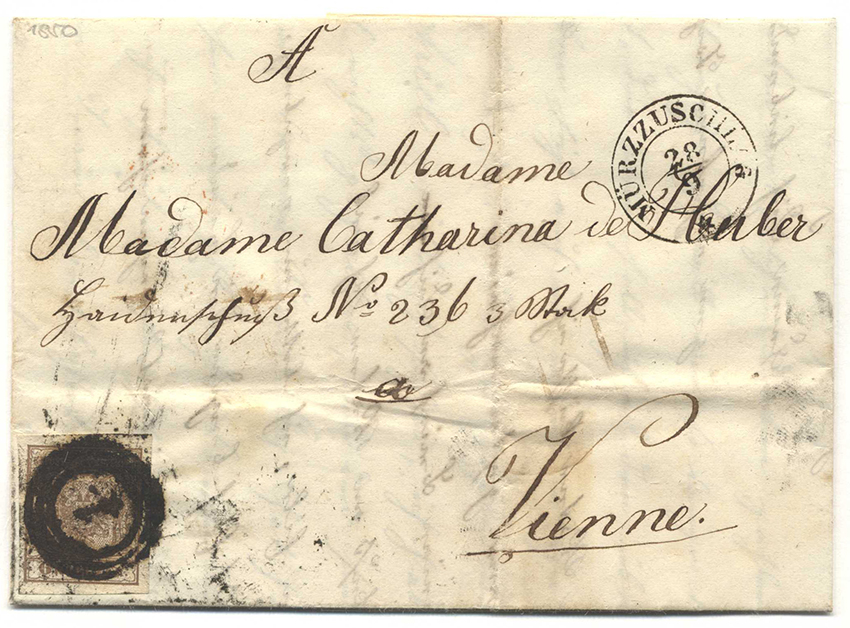 1850
A
MÜRZZUSCHLAG
28
9
Madame
Madame Catharina de Huber
Haidenschuß No 236 3 Stok
a
Vienne.